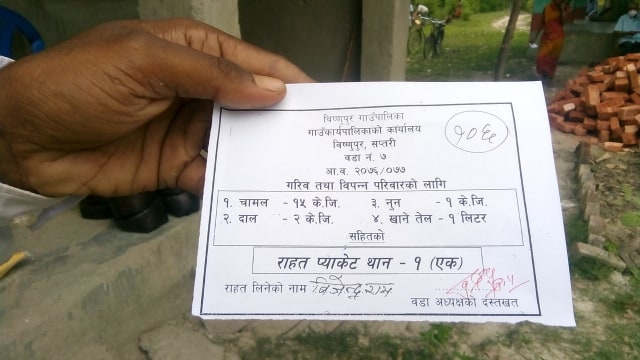 विष्णुपुर गाउँपालिका
गाउँकार्यपालिकाको कार्यालय
विष्णुपुर, सप्तरी
वडा नं. ७
आ.व. २०७६/०७७
१०६
गरिव तथा विपन्न परिवारको लागि
१. चामल - १५ के.जि. ३. नुन - १ के.जि.
२. दाल - २ के.जि. ४. खाने तेल - १ लिटर
सहितको
राहत प्याकेट थान - १ (एक)
राहत लिनेको नाम बिजेन्द्र राम
वडा अध्यक्षको दस्तखत